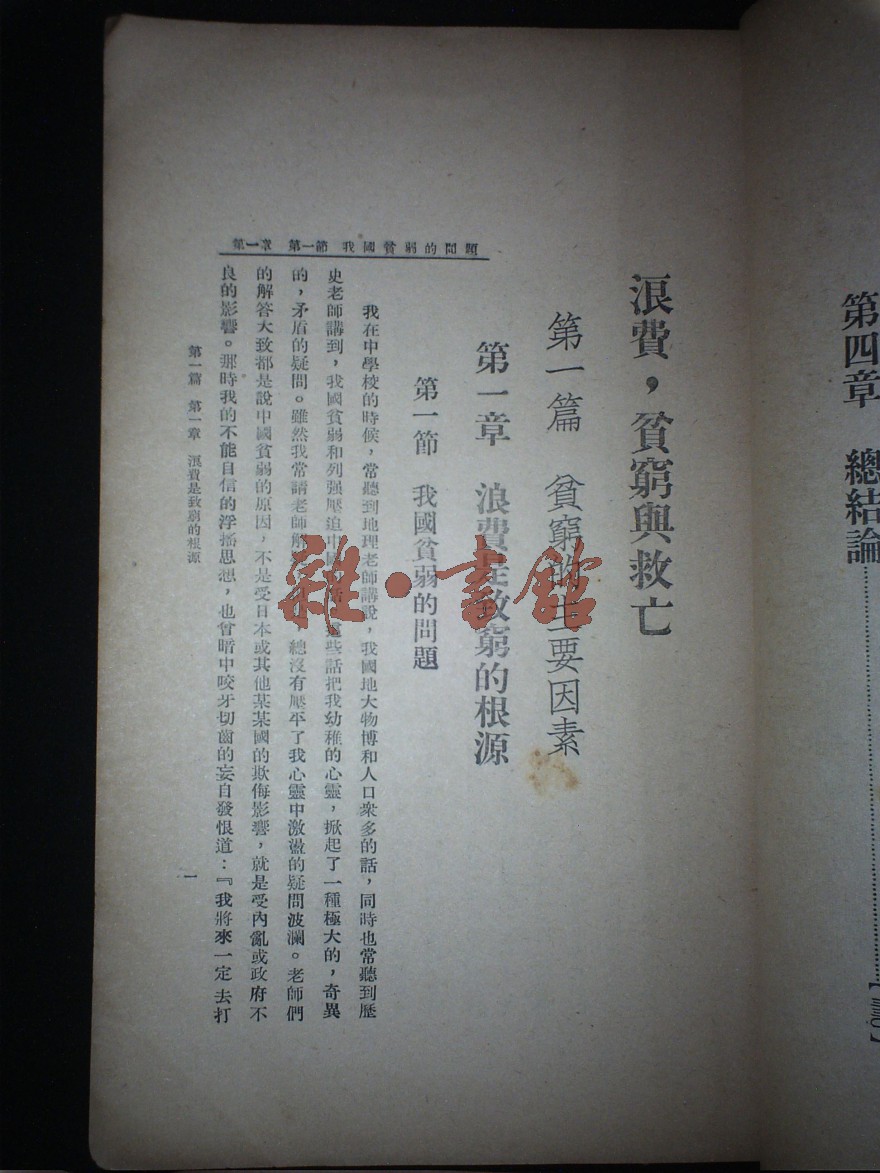 第四章　總結論
浪費，貧窮與救亡
第一篇　貧窮的主要因素
第一章　浪費是致窮的根源
第一節　我國貧弱的問題
我在中學校的時候，常聽到地理老師講說，我國地大物博和人口衆多的話，同時也常聽到歷
史老師講到，我國貧弱和列强壓迫中國 這些話把我幼稚的心靈，掀起了一種極大的，奇異
的，矛盾的疑問。雖然我常請老師解 總沒有壓平了我心靈中激盪的疑問波瀾。老師們
的解答大致都是說中國貧弱的原因，不是受日本或其他某某國的欺侮影響，就是受內亂或政府不
良的影響。那時我的不能自信的浮搖思想，也曾暗中咬牙切齒的妄自發恨道：『我將來一定去打
第一章　第一節　我國貧弱的問題
第一篇　第一章　浪費是致窮的根源
一
雜·書館